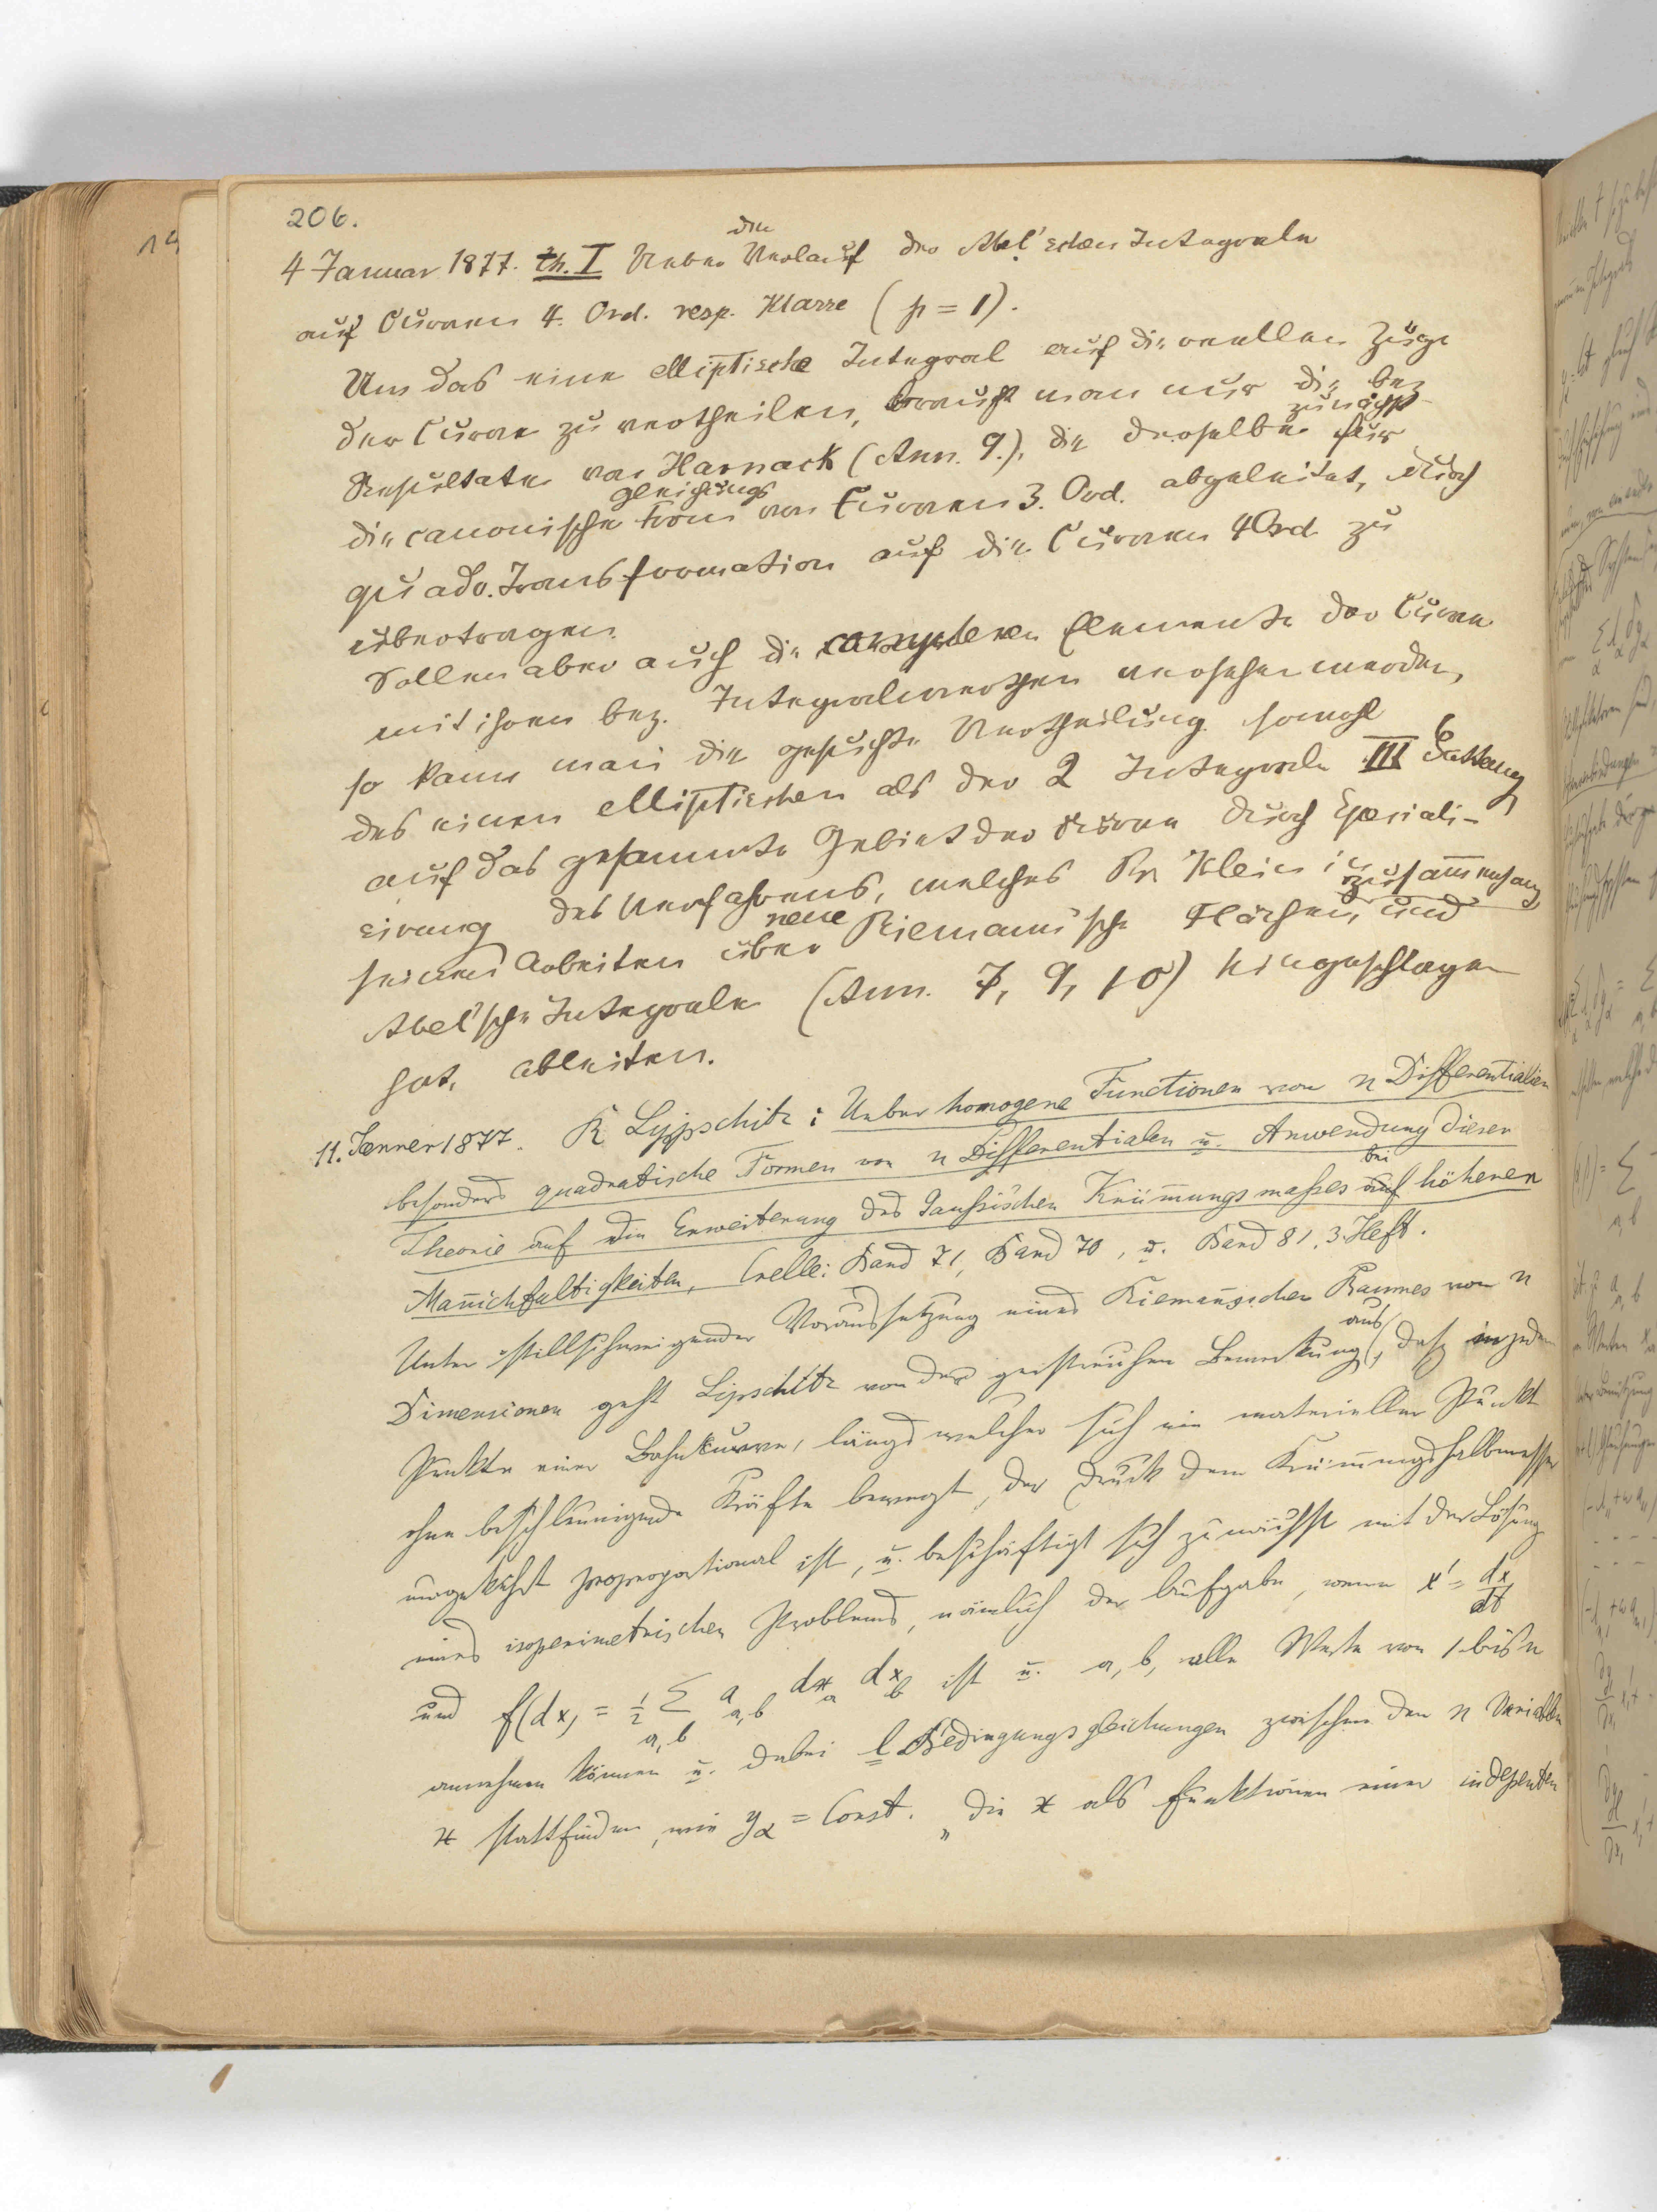 206.
4 Januar 1877. th. I Ueber den Verlauf der Abel'schen Integrale
auf Curven 4. Ord. resp. Klasse (p = 1).
Um das eine elliptische Integral auf die reellen Züge
der Curve zu vertheilen, braucht man nur die bez.
Resultate von Harnack (Ann. 9.), die derselbe zunächst für
die canonische Gleichungsform von Curven 3. Ord. abgeleitet, durch
quadr. Transformation auf die Curven 4 Ord. zu
übertragen.
Sollen aber auch die complexen Elemente der Curve
mit ihren bez. Integralwerthen versehen werden,
so kann man die gesuchte Vertheilung sowohl
des einen elliptischen als der 2 Integrale III Gattung
auf das gesammte Gebiet der Curve durch Speciali-
sirung des Verfahrens, welches Hr. Klein im Zusammenhang
seinen Arbeiten über neue Riemann'sche Flächen, und
Abel'sche Integrale (Ann. 7, 9, 10) hingeschlagen
hat, ableiten.
11. Jenner 1877. R. Lypschitz: Ueber homogene Functionen von n Differentialien
besonders quadratische Formen von n Differentialen u. Anwendung dieser
Theorie auf die Erweiterung des Gaußischen Krümmungsmaßes auf bei höheren
Mannichfaltigkeiten, Crelle: Band 71, Band 70, u. Band 81, 3. Heft.
Unter stillschweigender Voraussetzung eines Riemannschen Raumes von n
Dimensionen geht Lipschitz von der geistreichen Bemerkung aus, daß in jedem
Punkte einer Bahnkurve, längs welcher sich ein materieller Punkt
ohne beschleunigende Kräfte bewegt, der Druck dem Krümmungshalbmesser
umgekehrt proportional ist, u. beschäftigt sich zunächst mit der Lösung
eines isoperimetrischen Problems, nämlich der Aufgabe, wenn x' = dx/dt
und f(dx) = ½ Σ a_{a,b} dx_a dx_b ist u. a, b, alle Werte von 1 bis n
annehmen können u. dabei l Bedingungsgleichungen zwischen den n Variablen
x stattfinden, wie y_α = Const. „die x als Funktionen einer indepenten